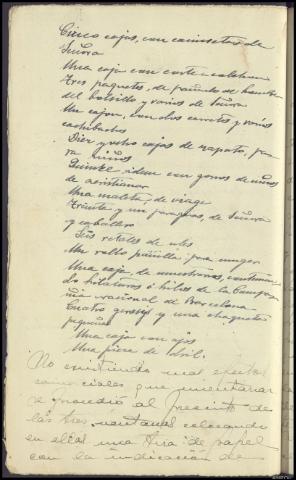 Cinco cajas, con camisetas de
Señora
Una caja con corte
Tres paquetes, de pañuelo de hombre
del bolsillo y varios de Señora
Un cajon, con dos carretes y varios
cachibachos
Diez y ocho cajas de zapatos, pa
ra niños
Quince idem con gorras de niños
de
Una maleta, de viage
Treinta y un paraguas, de Señora
y caballero
Seis retales de
Un rollo para muger
Una caja, de muestrarios, contenien
do hilaturas é hilos de la Compa
ñia nacional de Barcelona
Cuatro gerseys y una chaqueta
pequeña
Una caja con ojos
Una pieza de
No existiendo mas efectos
comerciales que inventariar
se procedió al precinto de
las tres ventanas colocando
en ellas una tira de papel
con la indicación de